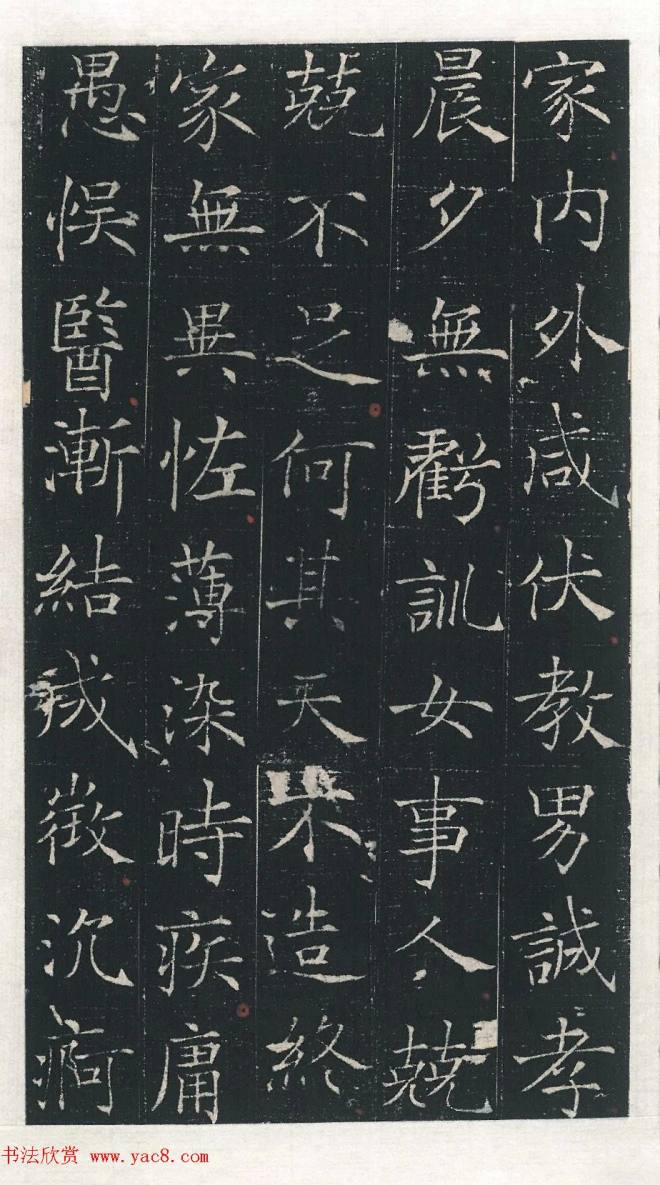 家内外咸伏教男誠孝
晨夕無虧訓女事人兢
兢不足何其天不造終
家無異恠薄染時疾庸
愚悮醫漸結成徵沉痾
书法欣赏 www.yac8.com